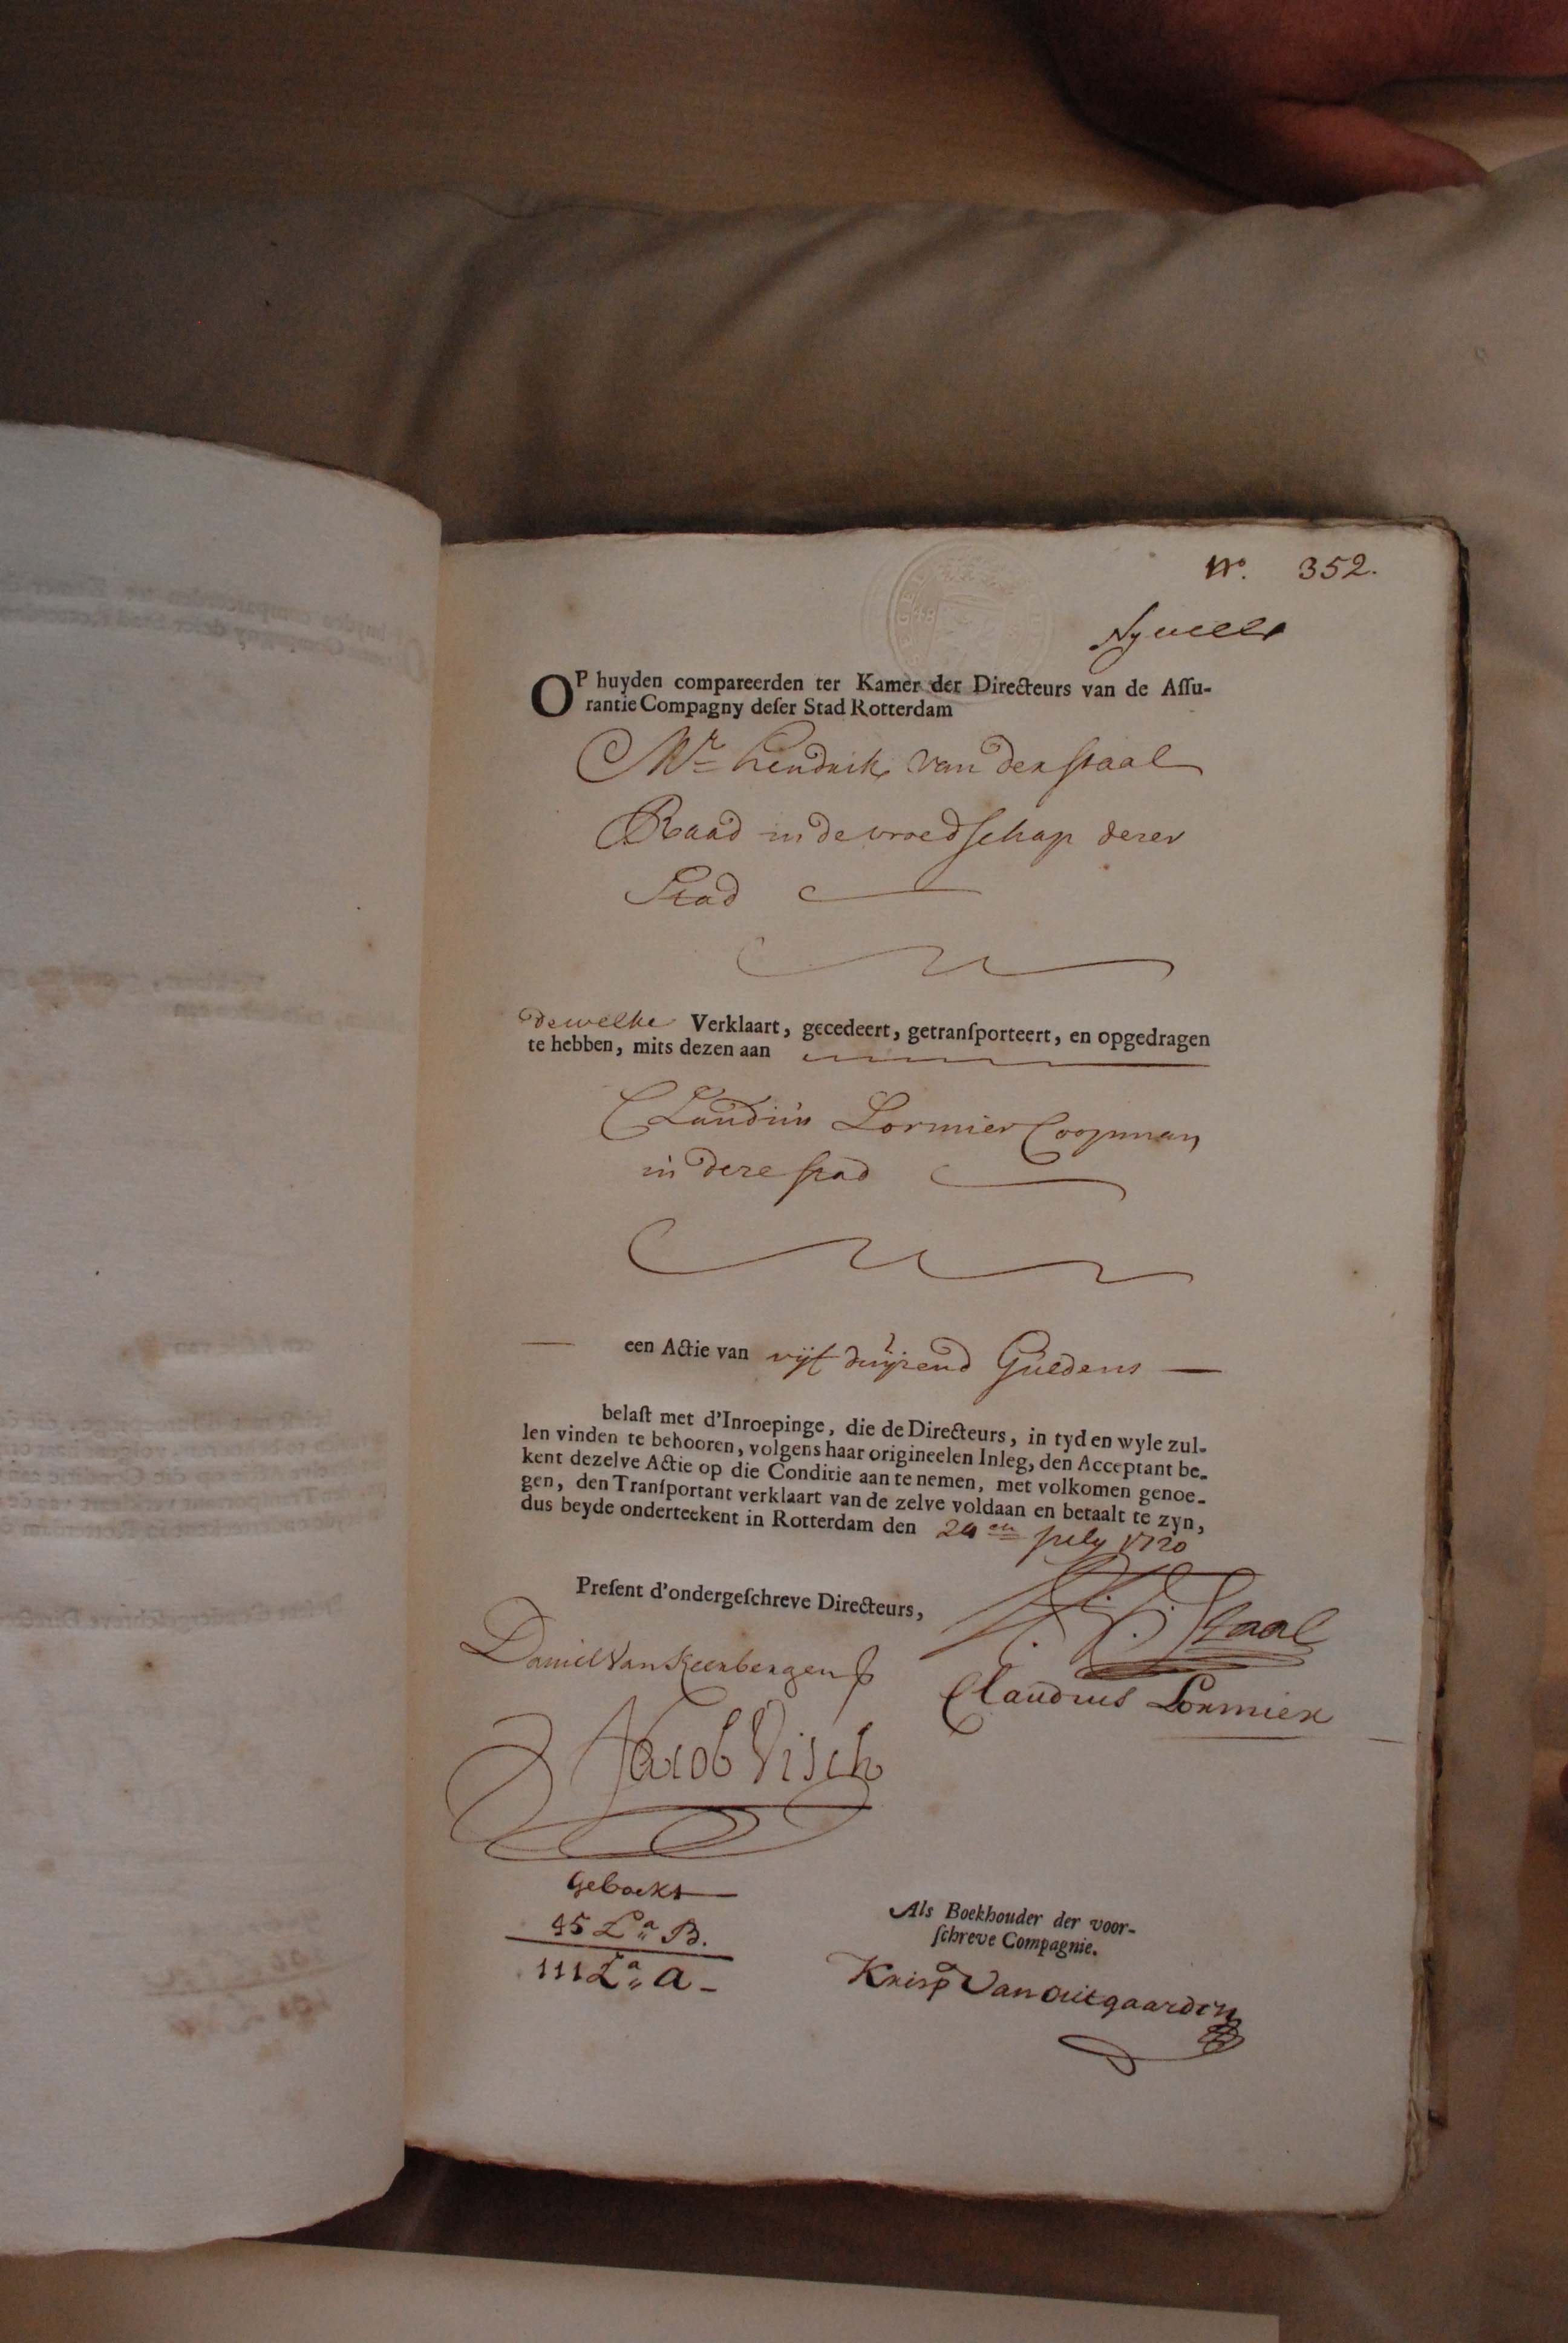 No. 352.
OP huyden compareerden ter Kamer der Directeurs van de Assu-
rantie Compagny deser Stad Rotterdam
Mr. Hendrik van der Staal
Raad in de vroedschap dezer
Stad
dewelke Verklaart, gecedeert, getransporteert, en opgedragen
te hebben, mits dezen aan
Claudius Lormier Coopman
in deze stad
een Actie van vijf duijzend Guldens
belast met d'Inroepinge, die de Directeurs, in tyd en wyle zul-
len vinden te behooren, volgens haar origineelen Inleg, den Acceptant be-
kent dezelve Actie op die Conditie aan te nemen, met volkomen genoe-
gen, den Transportant verklaart van de zelve voldaan en betaalt te zyn,
dus beyde onderteekent in Rotterdam den 24en July 1720
Present d'ondergeschreve Directeurs,
Staal
Daniel Van Keerbergen
Claudius Lormier
Jacob Visch
Geboekt
45 La B.
111 La A
Als Boekhouder der voor-
schreve Compagnie.
Krisp Van Outgaarden